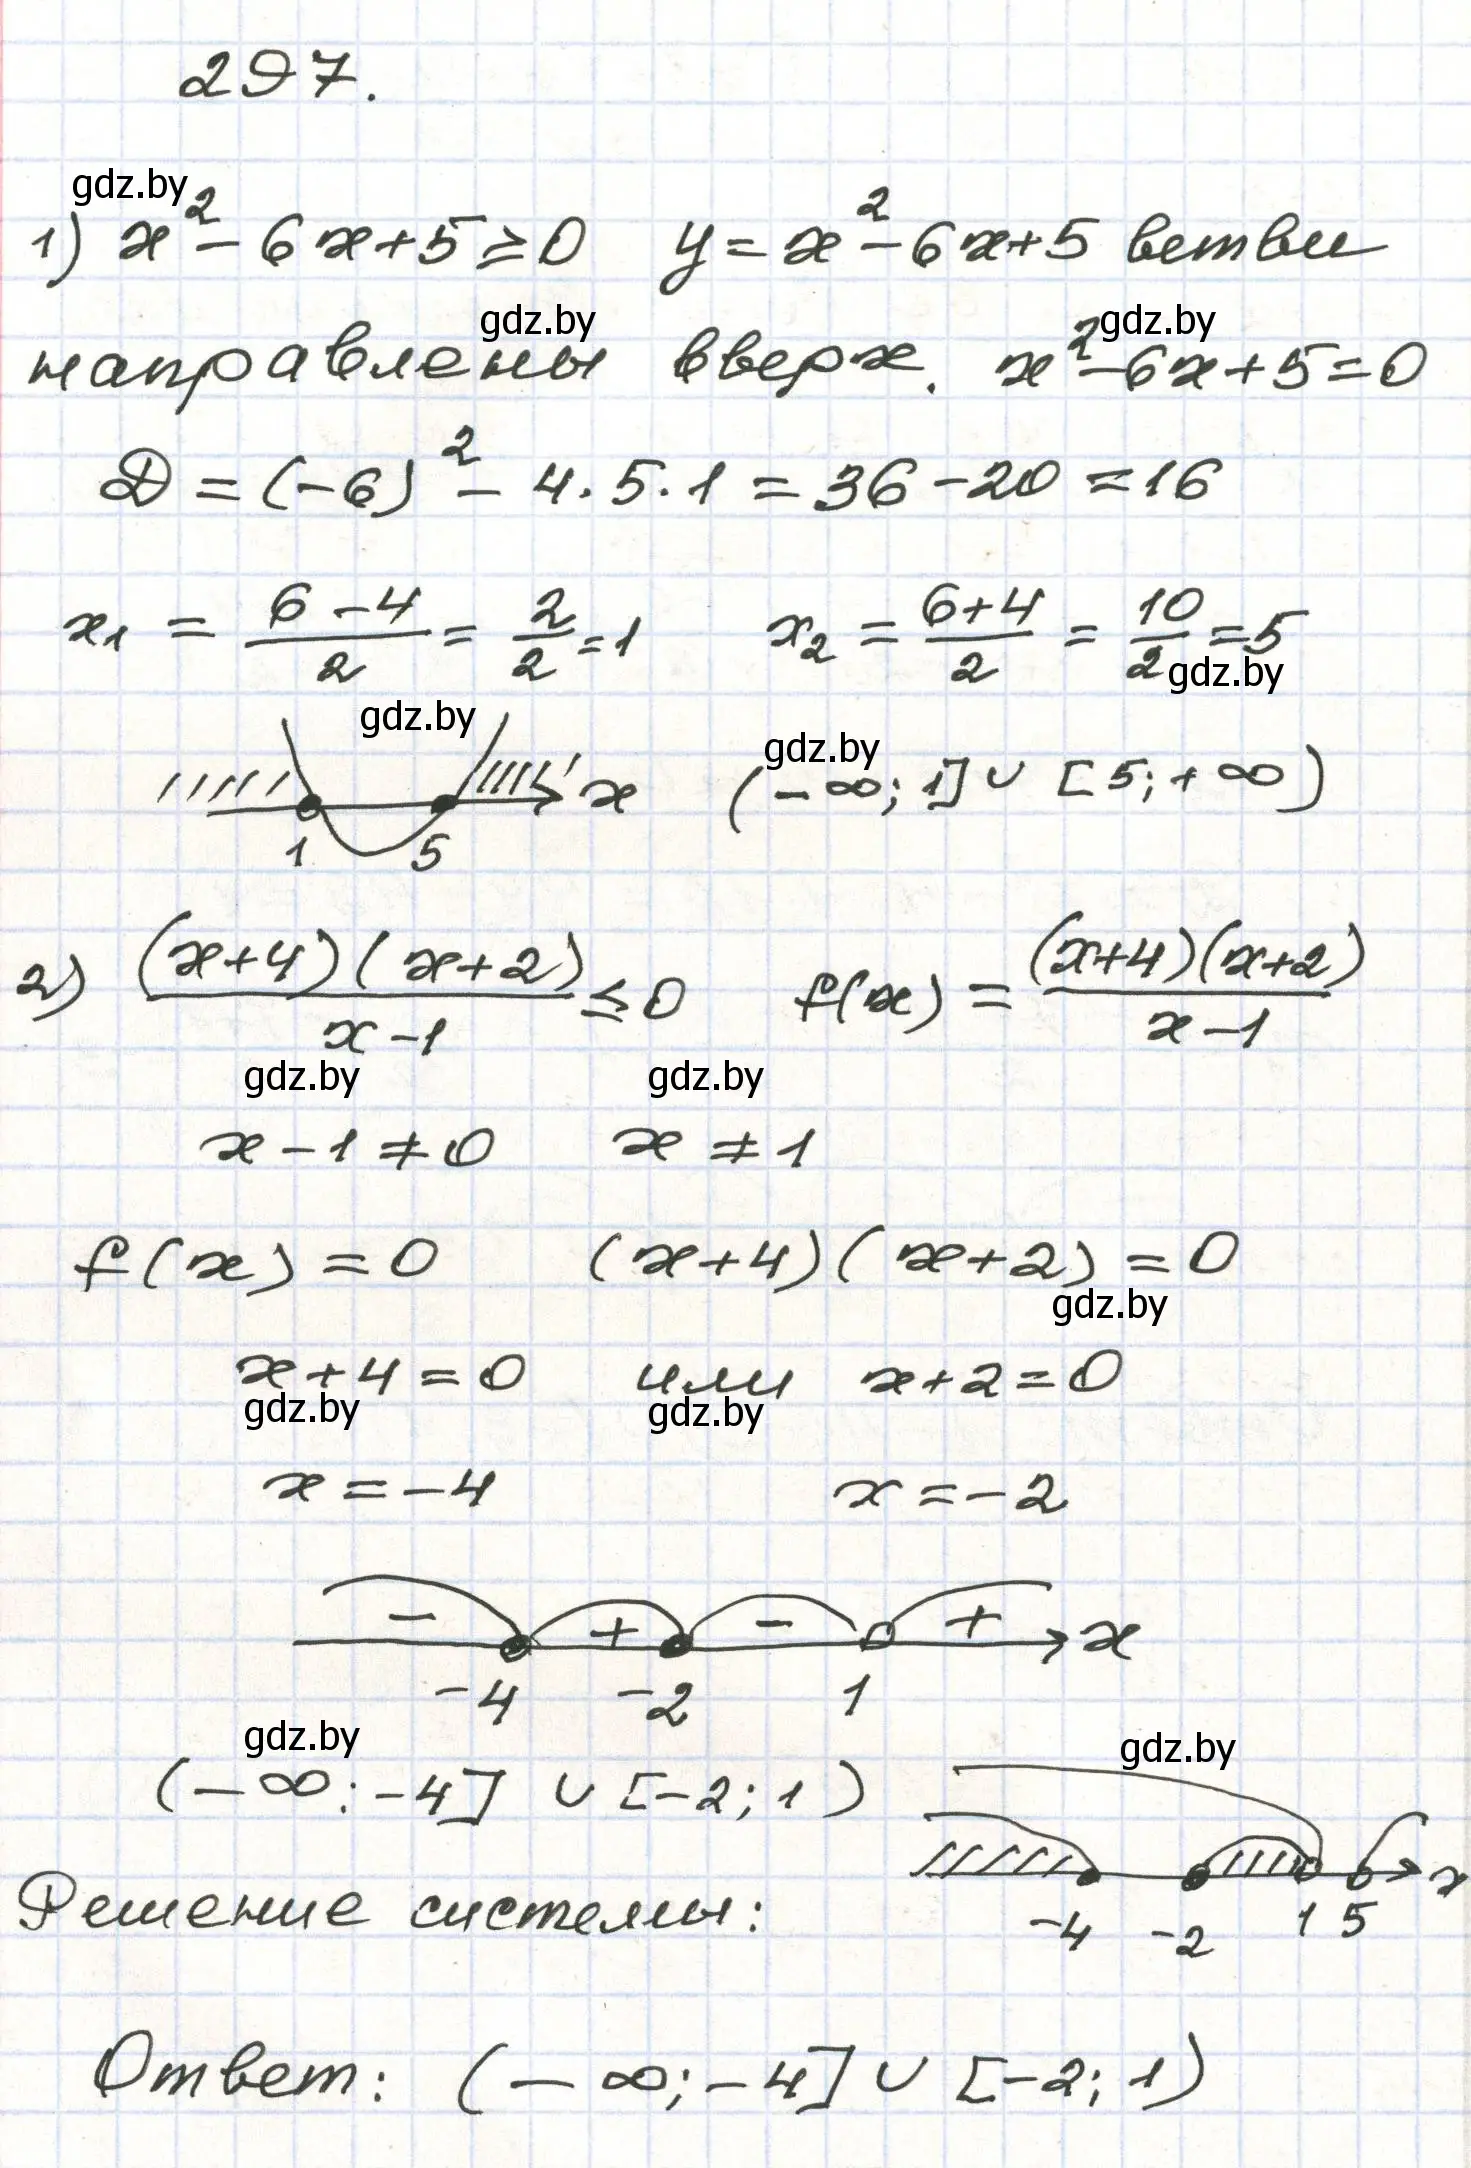 297.
gdz.by
1) x² - 6x + 5 ≥ 0   y = x² - 6x + 5 ветви
gdz.by gdz.by
направлены вверх. x² - 6x + 5 = 0
D = (-6)² - 4 · 5 · 1 = 36 - 20 = 16
x₁ = (6 - 4)/2 = 2/2 = 1   x₂ = (6 + 4)/2 = 10/2 = 5
gdz.by
gdz.by gdz.by
x   (-∞; 1] ∪ [5; +∞)
1 5
2) (x+4)(x+2)/(x-1) ≤ 0   f(x) = (x+4)(x+2)/(x-1)
gdz.by gdz.by
x - 1 ≠ 0   x ≠ 1
f(x) = 0   (x+4)(x+2) = 0
gdz.by
x + 4 = 0   или   x + 2 = 0
gdz.by gdz.by
x = -4   x = -2
- + - + x
-4 -2 1
gdz.by gdz.by
(-∞; -4] ∪ [-2; 1)
x
Решение системы:
-4 -2 1 5
Ответ: (-∞; -4] ∪ [-2; 1)